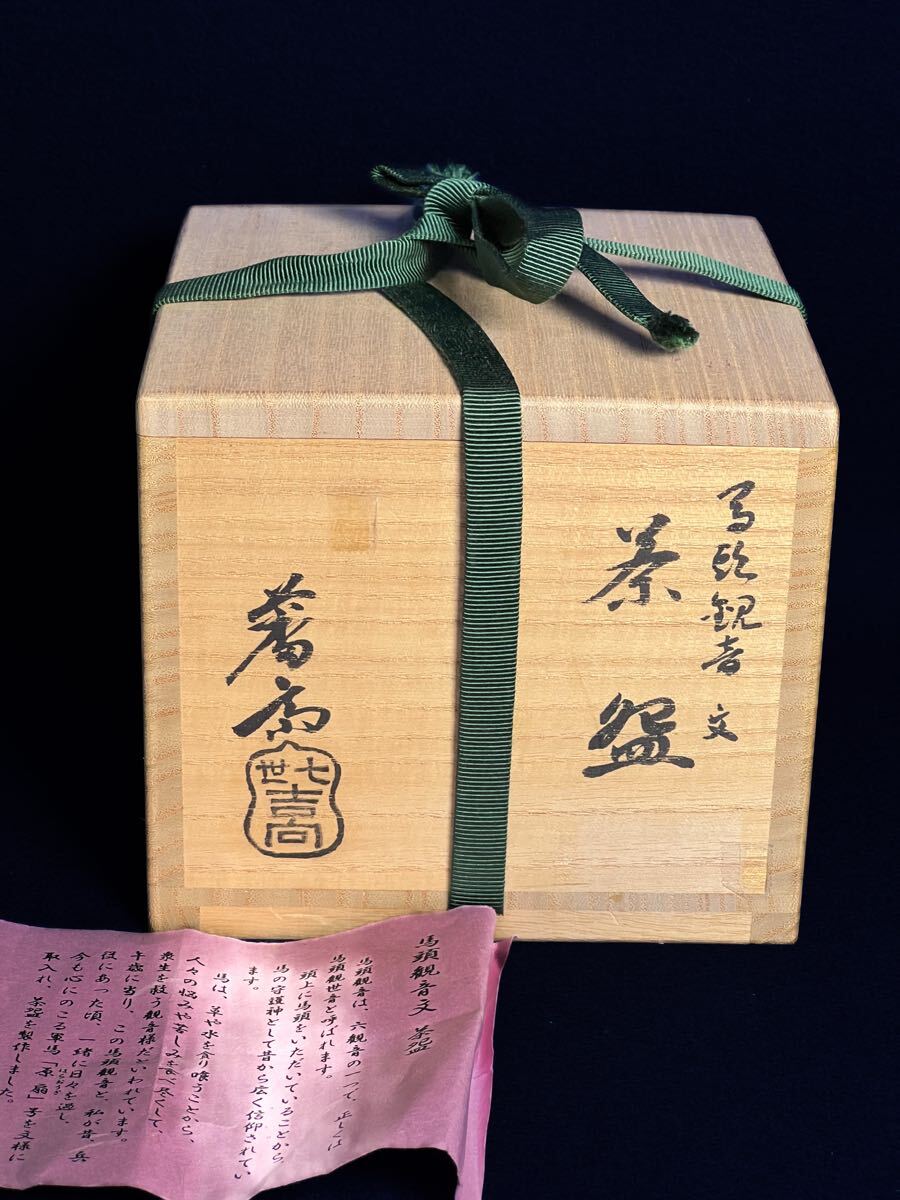 馬頭観音文
茶盌
蕃斎
七世
吉向
馬頭観音文 茶盌
馬頭観音は、六観音の一つで、正しくは
馬頭観世音と呼ばれます。
頭上に馬頭をいただいていることから
馬の守護神として昔から広く信仰されてい
ます。
馬は、草や水を貪り喰うことから、
人々の悩みや苦しみを食べ尽くして、
衆生を救う観音様だといわれています。
午歳に当り、この馬頭観音と、私が昔、兵
役にあった頃、一緒に日々を過し、
今も心にのこる軍馬「原扇」号を文様に
取入れ、茶盌を製作しました。